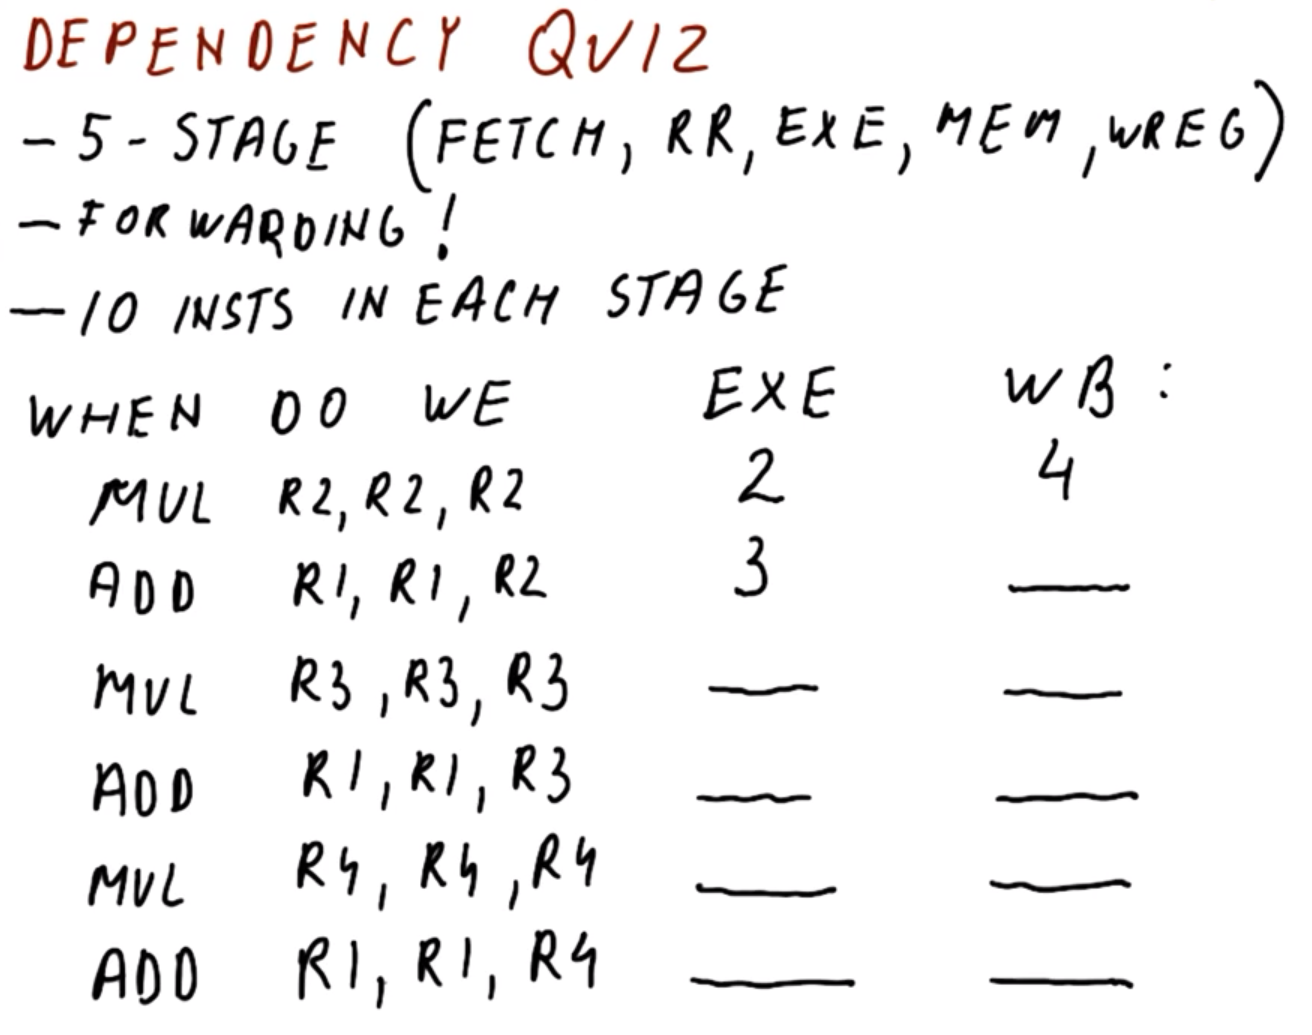 DEPENDENCY QUIZ
- 5 - STAGE (FETCH, RR, EXE, MEM, WREG)
- FORWARDING!
- 10 INSTS IN EACH STAGE
WHEN DO WE EXE WB:
MUL R2, R2, R2 2 4
ADD R1, R1, R2 3
MUL R3, R3, R3
ADD R1, R1, R3
MUL R4, R4, R4
ADD R1, R1, R4